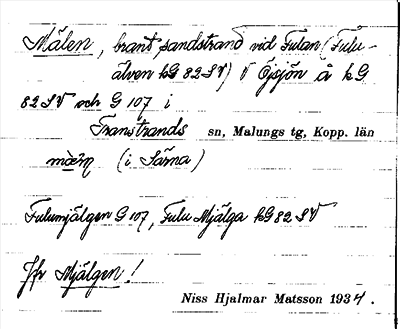 Mälen, brant sandstrand vid Fulan (Fulu-
älven kG 82 SV) V Öjsjön å kG
82 SV och G 107 i
Transtrands sn, Malungs tg, Kopp. län
(i Särna)
Fulumjälgen G 107, Fulu Mjälga kG 82 SV
Jfr Mjälgen!
Niss Hjalmar Matsson 1934.